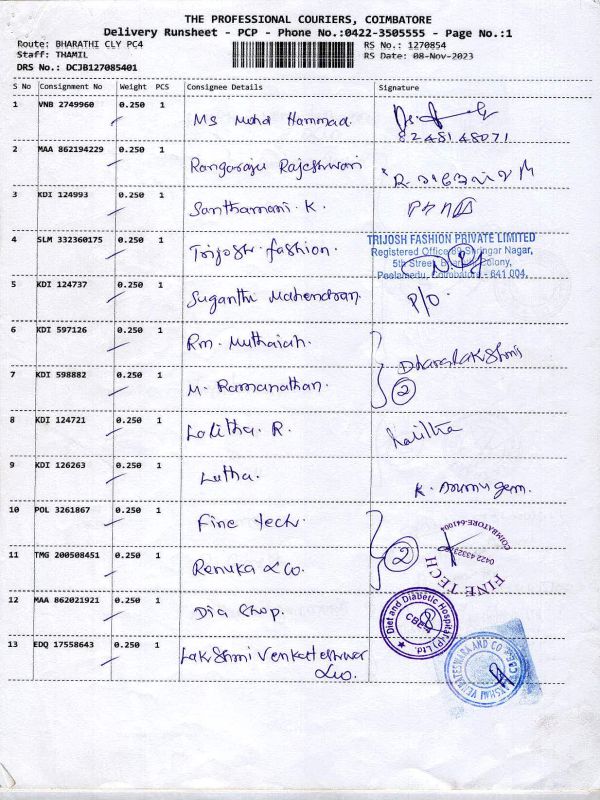 THE PROFESSIONAL COURIERS, COIMBATORE
Delivery Runsheet - PCP - Phone No.:0422-3505555 - Page No.:1
Route: BHARATHI CLY PC4 RS No.: 1270854
Staff: THAMIL RS Date: 08-Nov-2023
DRS No.: DCJB127085401
S No Consignment No Weight PCS Consignee Details Signature
1 VNB 2749960 0.250 1 Ms Mohd Hammad.
8248148071
2 MAA 862194229 0.250 1 Rangaraju Rajeshwari
3 KDI 124993 0.250 1 Santhamani. K.
4 SLM 332360175 0.250 1 Trijosh fashion.
TRIJOSH FASHION PRIVATE LIMITED
Registered Office Nagar,
5th Street, Colony,
Peelamedu, Coimbatore - 641 004.
5 KDI 124737 0.250 1 Suganthi Mahendran. P/O.
6 KDI 597126 0.250 1 Rm. Muthaiah. Dhanalakshmi
7 KDI 598882 0.250 1 M. Ramanathan. 2
8 KDI 124721 0.250 1 Lalitha. R. Lalitha
9 KDI 126263 0.250 1 Lutha. K.
10 POL 3261867 0.250 1 Fine tech.
COIMBATORE-641004
FINE TECH
11 TMG 200508451 0.250 1 Renuka & Co. 2
12 MAA 862021921 0.250 1 Dia Shop.
Diet and Diabetic Hospital (P) Ltd.
CBE-4
13 EDQ 17558643 0.250 1 Lakshmi Venkateshwar
& Co.
LAKSHMI VENKATESWARA AND CO